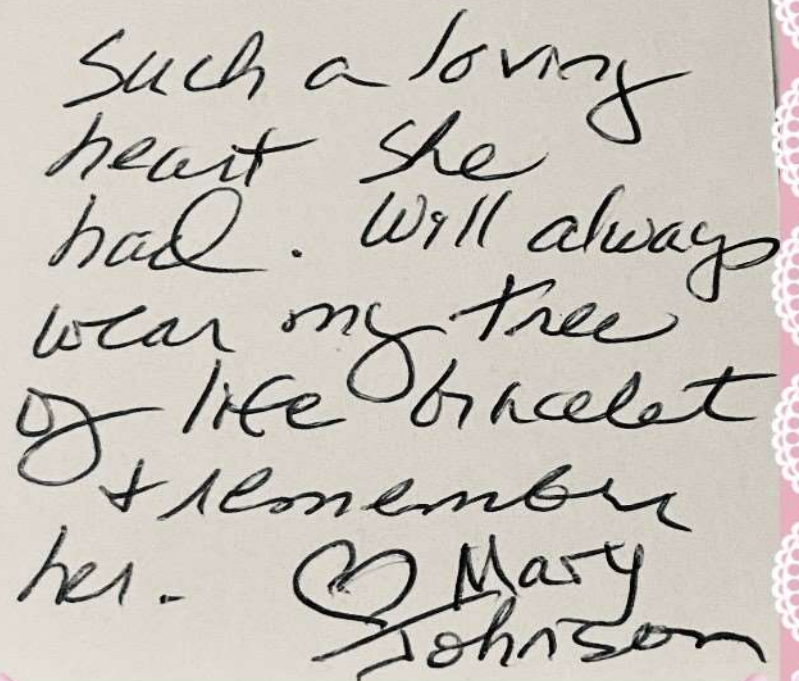 Such a loving
heart she
had. Will always
wear my tree
of life bracelet
+ remember
her. ♡ Mary
Johnson